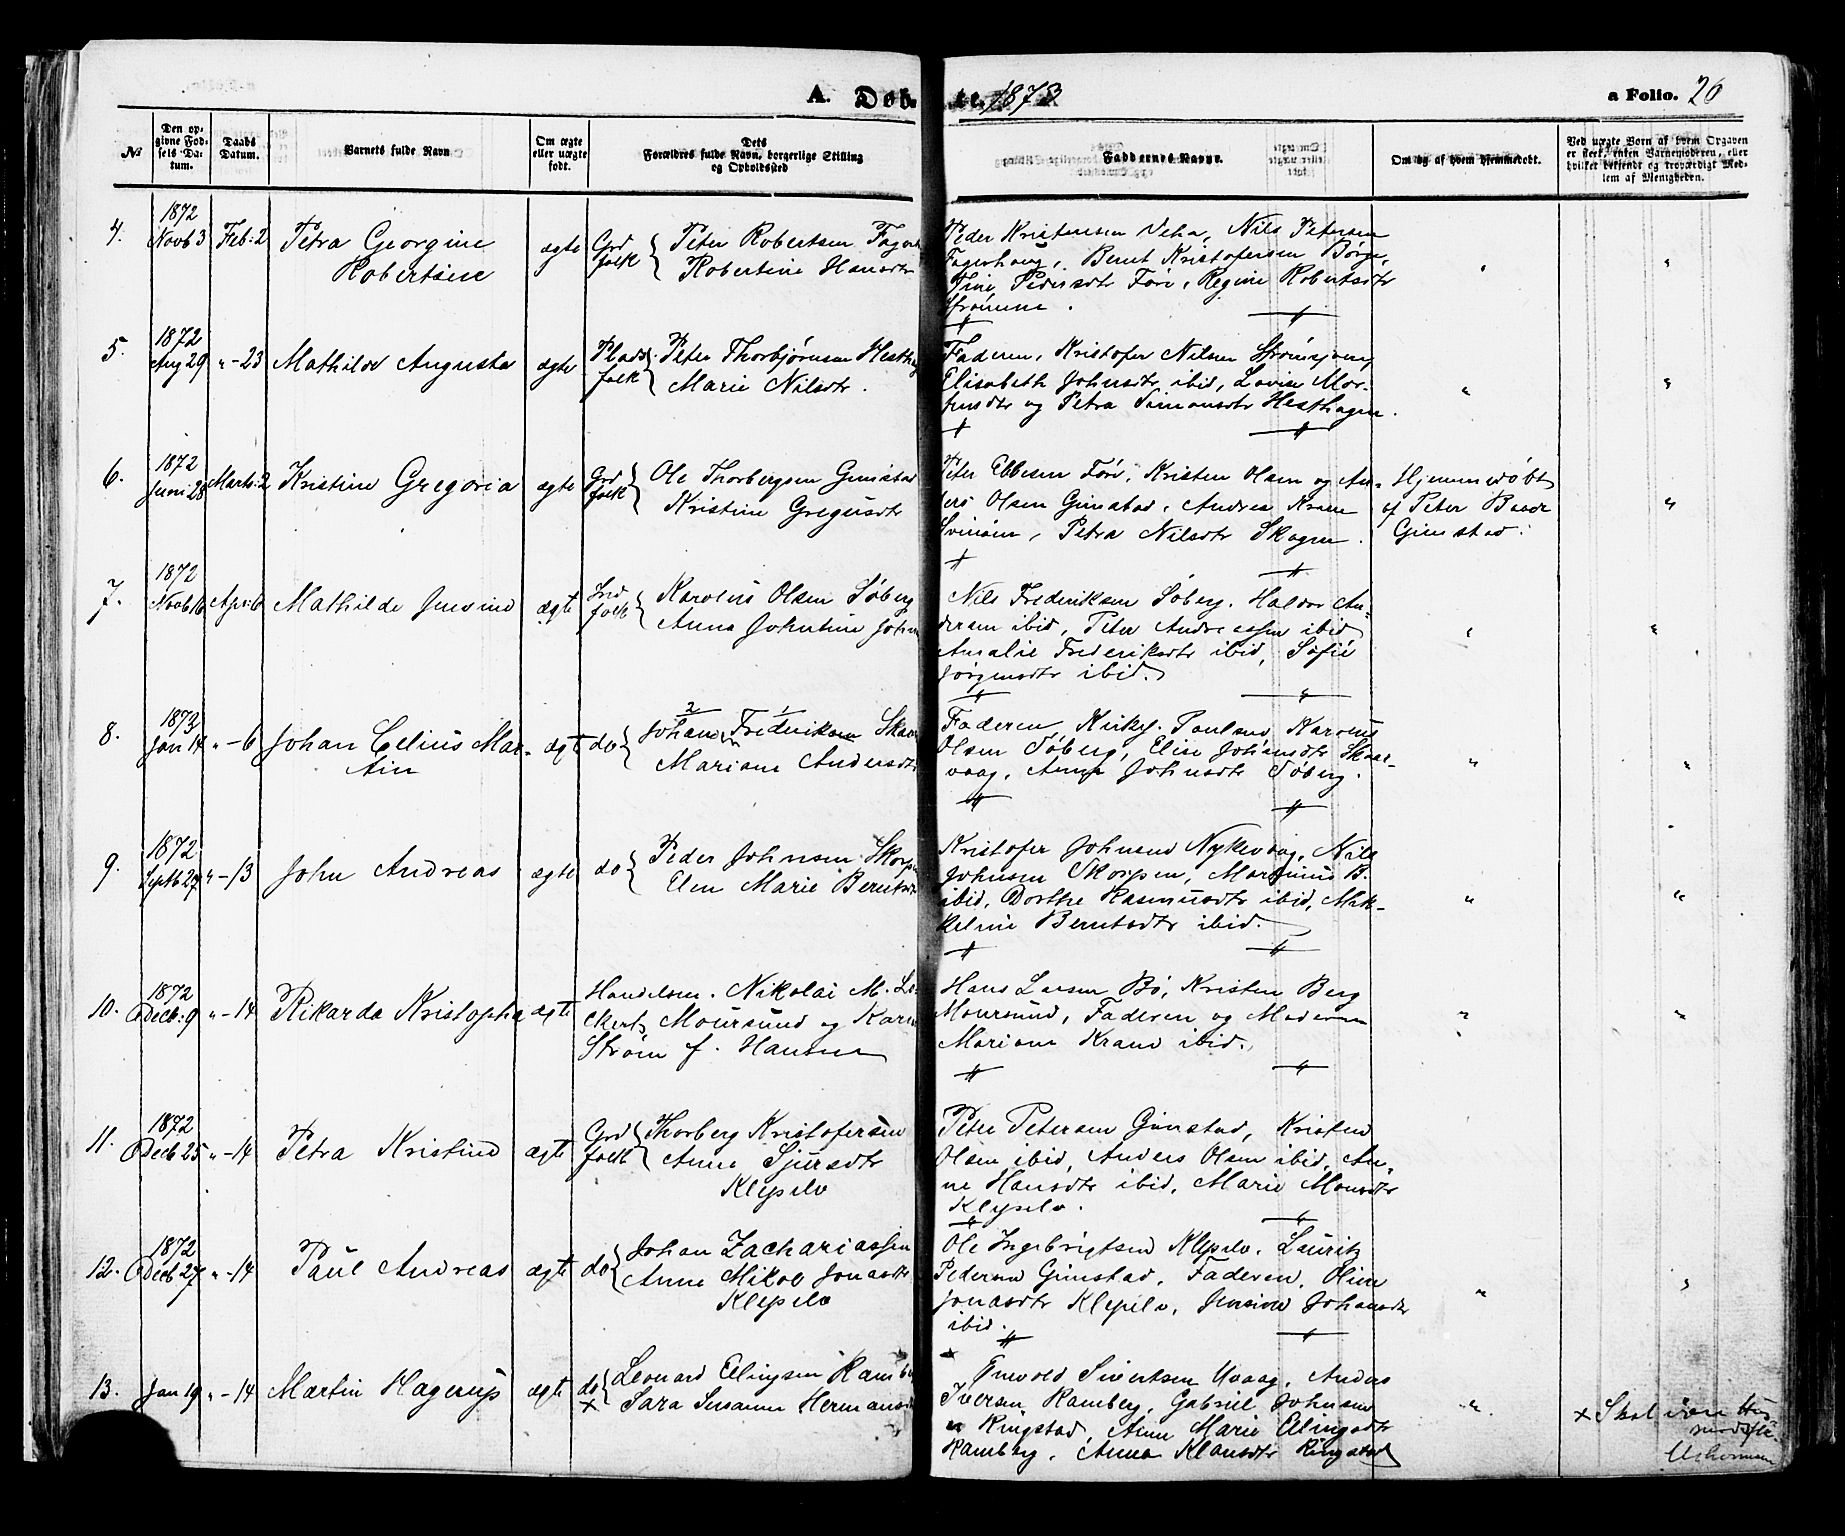 A. Døb- te. 1873
a Folio. 26
№
Den op-
givne Fød-
sels Da-
tum.
Daabs
Datum.
Barnets fulde Navn
Om ægte
eller uægte
født.
Dets
Forældres fulde Navn, borgerlige Stilling
og Opholdssted
Faddernes Navne.
Om og af hvem hjemmedøbt.
Ved uægte Børn af hvem Opgaven
er skeet, enten Barnemoderen, eller
hvilket bekjendt og troværdigt Med-
lem af Menigheden.
4.
1872
Novb 3
Feb: 2
Petra Georgine
Robertine
ægte
Grd
folk
Peter Robertsen
Robertine Hansdtr
Peder Kristensen Veha, Nils Petersen
Fagerhaug, Bernt Kristofersen Børge,
Pedersdtr Føre, Regine Robertsdtr
5.
1872
Aug 29
"-23
Mathilde Augusta
ægte
Plads
folk
Peter Thorbjørnsen
Marie Nilsdtr.
Faderen, Kristofer Nilsen
Elisabeth Johnsdtr ibid, Lovise Mor-
tensdtr og Petra Simonsdtr Hesthagen.
6.
1872
Juni 28
Marts: 2
Kristine Gregoria
ægte
Grd
folk
Ole Thorbergsen Gimstad
Kristine Gregusdtr
Peter Ebbesen Føre, Kristen Olsen og An-
ders Olsen Gimstad, Andrea Krane
Svinøen, Petra Nilsdtr Skagen.
Hjemmedøbt
af Peter
Gimstad.
7.
1872
Novb 16
Apr: 6
Mathilde Jensine
ægte
Ind
folk
Karolus Olsen Søberg
Anna Johntine
Nils Frederiksen Søberg. Haldor An-
dersen ibid, Peter Andreassen ibid
Amalie Frederiksdtr ibid, Sofie
Jørgensdtr ibid.
8.
1873
Jan 14
"-6
Johan Celius Mar-
tin
ægt
do
2 1
Johan Frederiksen
Mariane Andersdtr
Faderen, Paulsen, Karolus
Olsen Søberg, Elise Johansdtr Skaar-
vaag, Anne Johnsdtr Søberg.
9.
1872
Septb 27
"-13
John Andreas
ægte
do
Peder Johnsen
Elen Marie
Kristofer Johnsen Nykvaag, Nils
Johnsen Skorpen, Martinus B.
ibid, Dorthe Rasmusdtr ibid, Mik-
keline Berntsdtr ibid.
10.
1872
Decb: 9
"-14
Rikarda Kristopha
ægte
Handelsm. Nikolai M. Lo-
ckertz Moursund og
Strøm f. Hansen
Hans Larsen Bø, Kristen Berg
Moursund, Faderen og Moderen
Mariane Krane ibid.
11.
1872
Decb 25
"-14
Petra Kristine
ægte
Grd
folk
Thorberg Kristofersen
Anne Sjursdtr
Klepelv
Peter Petersen Gimstad, Kristen
Olsen ibid, Anders Olsen ibid, An-
ne Hansdtr ibid, Marie Monsdtr
Klepelv.
12.
1872
Decb 27
"-14
Paul Andreas
ægte
do
Johan Zachariassen
Anne Mikal Jonasdtr
Klepelv
Ole Ingebrigtsen Klepelv, Lauritz
Pedersen Gimstad, Faderen, Oline
Jonasdtr Klepelv, Jensine Johansdtr
ibid.
13.
Jan 19
"-14
Martin Hagerup
ægt
do
x
Leonard Elingsen
Sara Susanne
Sivertsen Uvaag, Anders
Iversen Ramberg, Gabriel Johnsen
Ringstad, Anne Marie Elingsdtr
Ramberg, Anna Klausdtr Ringstad
x Skal være